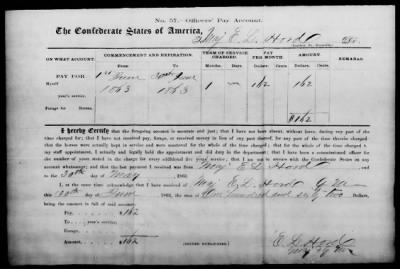 No. 57.—Officers' Pay Account.
The Confederate States of America,
Maj E. L. Hord Dr.
ON WHAT ACCOUNT. COMMENCEMENT AND EXPIRATION. TERM OF SERVICE CHARGED. PAY PER MONTH. AMOUNT REMARKS.
From— To— Months. Days. Dollars. Cents. Dollars. Cents.
PAY FOR 1st June 30th June 1 — 162 162
Myself 1863 1863
year's service,
Forage for Horses,
$162
I hereby Certify that the foregoing account is accurate and just; that I have not been absent without leave, during any part of the time
charged for; that I have not received pay, forage, or received money in lieu of any part thereof, for any part of the time therein charged;
that the horses were actually kept in service and were mustered for the whole of the time charged; that for the whole of the time charged for
my staff appointment, I actually and legally held the appointment and did duty in the department; that I have been a commissioned officer for
the number of years stated in the charge for every additional five years' service; that I am not in arrears with the Confederate States on any
account whatsoever; and that the last payment I received was from Maj E. L. Hord
to the 30th day of May 186
I, at the same time acknowledge that I have received of Maj E. L. Hord Q M
this 30th day of June 186 , the sum of One hundred and sixty two Dollars,
being the amount in full of said account.
Pay, $162
Forage,
Amount, $162 [SIGNED DUPLICATES.]
E L Hord
Maj & QM